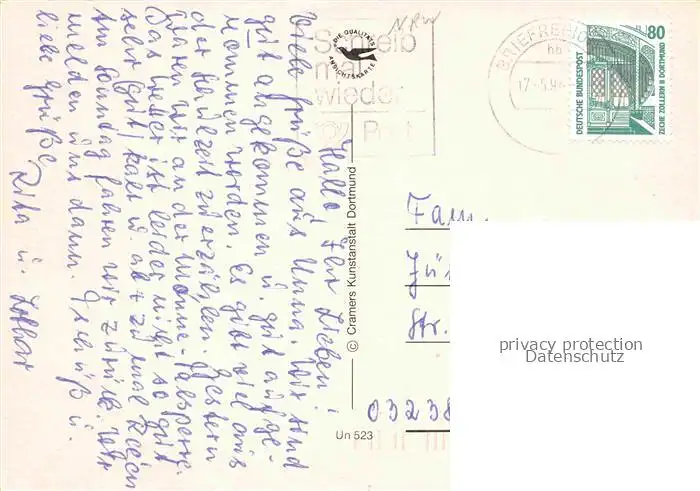 Hallo! Ihr Lieben!
Viele Grüße aus Unna. Wir sind
gut angekommen u. gut aufge-
nommen worden. Es gibt viel aus
der Kurzeit zu erzählen. Gestern
waren wir an der Möhne-Talsperre.
Das Wetter ist leider nicht so gut
sehr kalt u. ab + zu mal Regen
Am Sonntag fahren wir zurück. Wir
melden uns dann. Gruß u.
liebe Grüße,
Rita u. Lothar
NRW
DIE QUALITÄTS
ANSICHTSKARTE
Schreib
mal
wieder
Post
BRIEFREGION
hb
17.-5.96
80
DEUTSCHE BUNDESPOST
ZECHE ZOLLERN II DORTMUND
© Cramers Kunstanstalt Dortmund
Un 523
Fam.
Jü
Str.
03238
privacy protection
Datenschutz